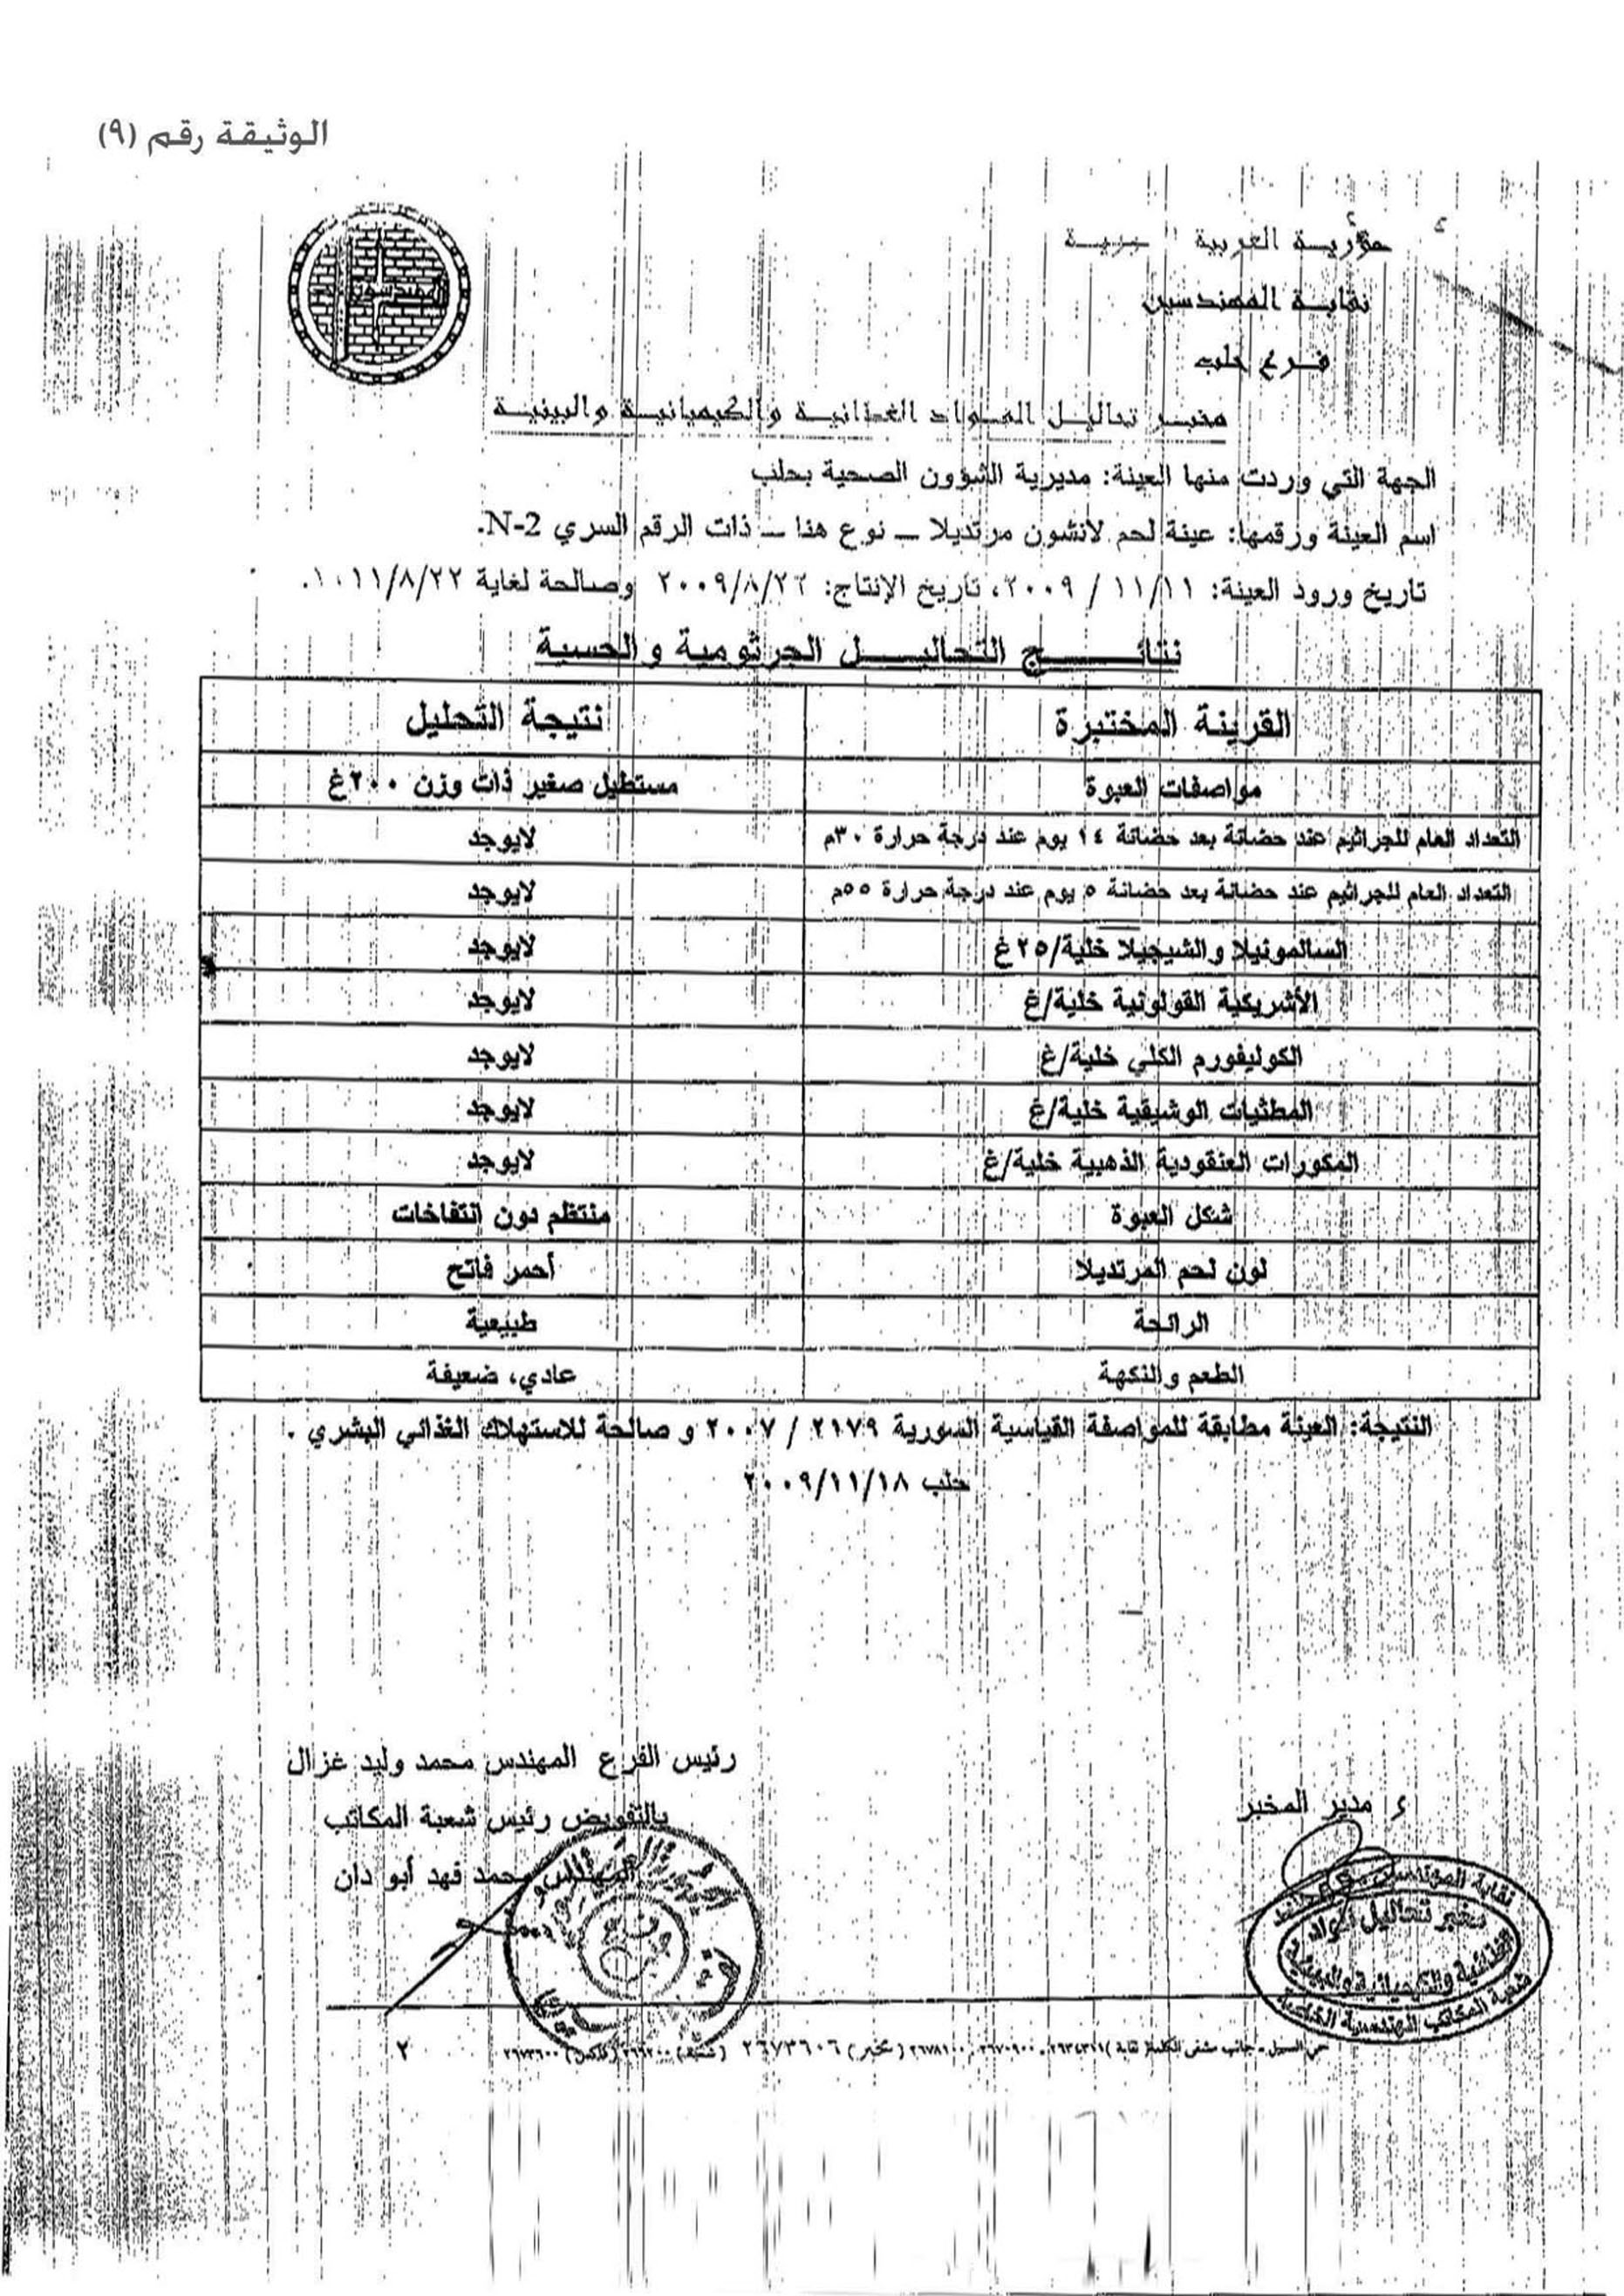 الوثيقة رقم (٩)
العربية
نقابة المهندسين
فرع حلب
مخبر تحاليل المواد الغذائية والكيميائية والبيئية
الجهة التي وردت منها العينة: مديرية الشؤون الصحية بحلب
اسم العينة ورقمها: عينة لحم لانشون مرتديلا – نوع هنا – ذات الرقم السري N-2.
تاريخ ورود العينة: ١١/١١ / ٢٠٠٩، تاريخ الإنتاج: ٢٠٠٩/٨/٢٢ وصالحة لغاية
نتائج التحاليل الجرثومية والحسية
القرينة المختبرة نتيجة التحليل
مواصفات العبوة مستطيل صغير ذات وزن ٢٠٠غ
التعداد العام للجراثيم عند حضانة بعد حضانة ١٤ يوم عند درجة حرارة ٣٠م لايوجد
التعداد العام للجراثيم عند حضانة بعد حضانة ٥ يوم عند درجة حرارة ٥٥م لايوجد
السالمونيلا والشيجيلا خلية/٢٥غ لايوجد
الأشريكية القولونية خلية/غ لايوجد
الكوليفورم الكلي خلية/غ لايوجد
المطثيات الوشيقية خلية/غ لايوجد
المكورات العنقودية الذهبية خلية/غ لايوجد
شكل العبوة منتظم دون انتفاخات
لون لحم المرتديلا أحمر فاتح
الرائحة طبيعية
الطعم والنكهة عادي، ضعيفة
النتيجة: العينة مطابقة للمواصفة القياسية السورية ٢١٧٩ / ٢٠٠٧ و صالحة للاستهلاك الغذائي البشري .
حلب ٢٠٠٩/١١/١٨
رئيس الفرع المهندس محمد وليد غزال
مدير المخبر
بالتفويض رئيس شعبة المكاتب
المهندس محمد فهد أبو دان
نقابة المهندسين
مخبر تحاليل المواد
الغذائية والكيميائية والبيئية
شعبة المكاتب الهندسية الخاصة
حي السبيل - جانب مشفى الكلمة (مخبر) ٢٦٧٣٦٠٦ ٢